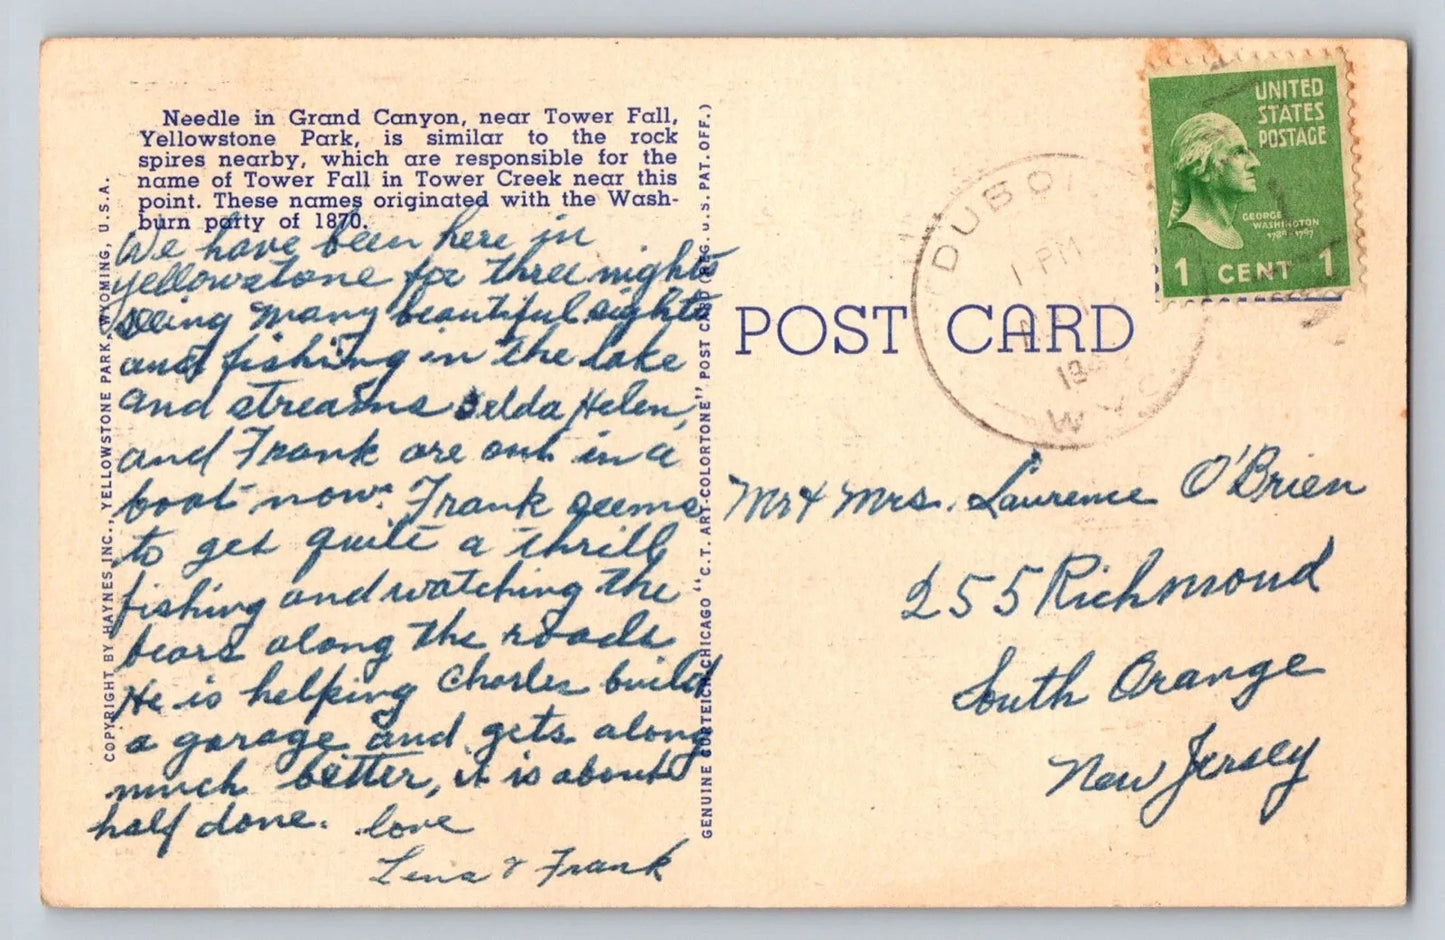 Needle in Grand Canyon, near Tower Fall,
Yellowstone Park, is similar to the rock
spires nearby, which are responsible for the
name of Tower Fall in Tower Creek near this
point. These names originated with the Wash-
burn party of 1870.
We have been here in
yellowstone for three nights
seeing many beautiful sights
and fishing in the lake
and streams Helen,
and Frank are out in a
boat now. Frank seems
to get quite a thrill
fishing and watching the
bears along the roads
He is helping Charles build
a garage and gets along
much better, it is about
half done. love
Lena & Frank
COPYRIGHT BY HAYNES INC., YELLOWSTONE PARK, WYOMING, U.S.A.
GENUINE CURTEICH-CHICAGO "C.T. ART-COLORTONE" POST CARD (REG. U.S. PAT. OFF.)
POST CARD
DUBOI
1 PM
194
WYO
UNITED
STATES
POSTAGE
GEORGE
WASHINGTON
1789-1797
1 CENT 1
Mr & Mrs. Laurence O'Brien
255 Richmond
South Orange
New Jersey